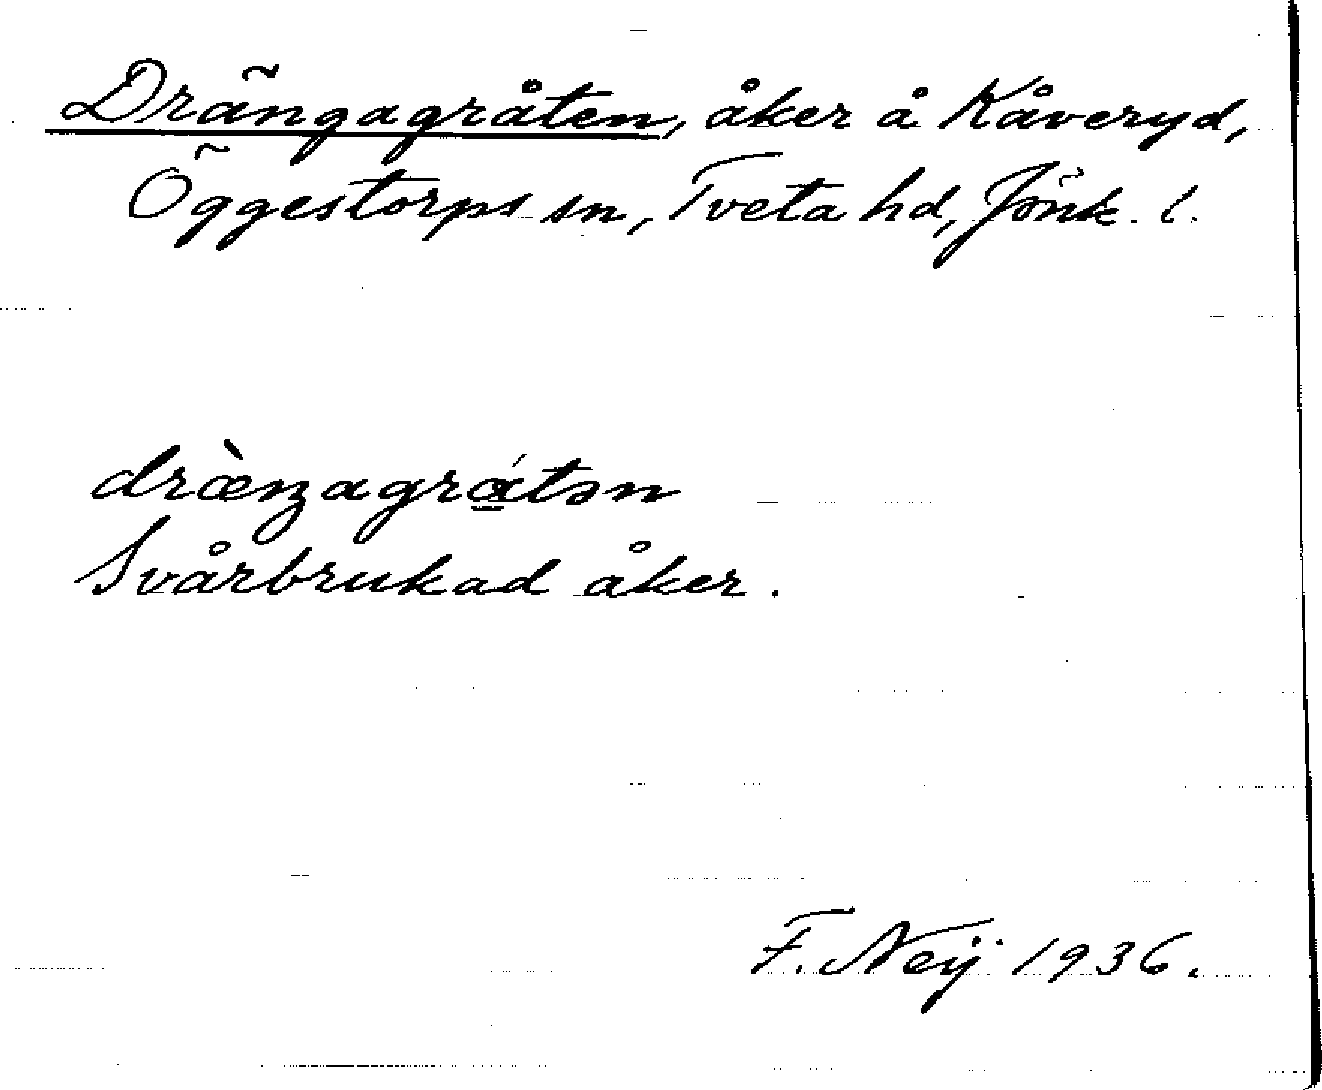 Drängagråten, åker å Kåveryd,
Öggestorps sn, Tveta hd, Jönk. l.
dræ̀ŋagrά̲tən
Svårbrukad åker.
F. Neij 1936.